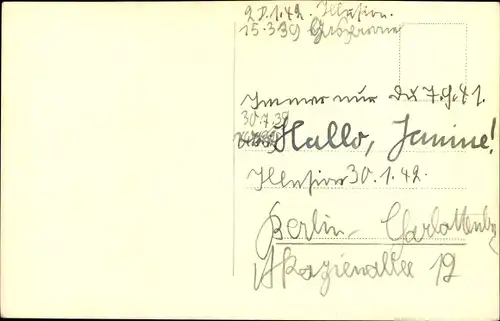 2 D.1.42. Illusion.
15.3.39
Immer nur Du 7.9.41.
30.7.39
Hallo, Janine!
Illusion 30.1.42.
Berlin-Charlottenbg
Akazienallee 19